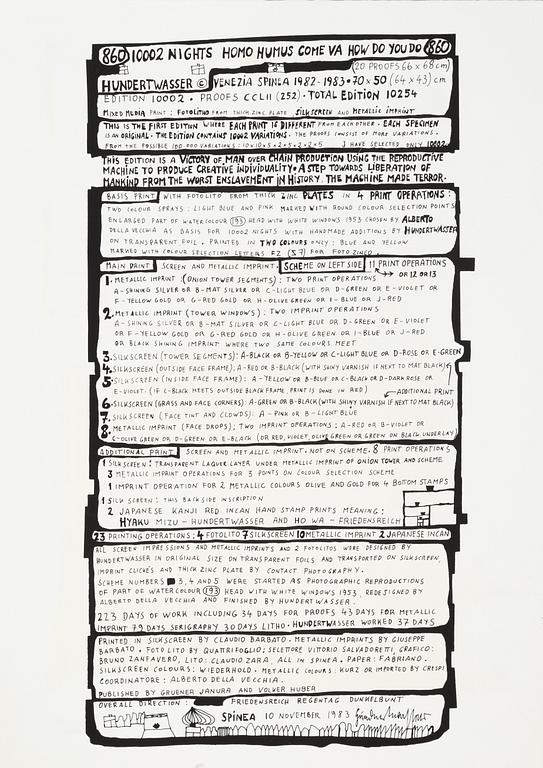 860 10002 NIGHTS HOMO HUMUS COME VA HOW DO YOU DO 860
(20 PROOFS 66 x 68 cm)
HUNDERTWASSER © VENEZIA SPINEA 1982-1983 • 70 x 50 (64 x 43) cm
EDITION 10002 • PROOFS CCLII (252) • TOTAL EDITION 10254
MIXED MEDIA PRINT: FOTOLITHO FROM THICK ZINC PLATE SILKSCREEN AND METALLIC IMPRINT
THIS IS THE FIRST EDITION WHERE EACH PRINT IS DIFFERENT FROM EACH OTHER • EACH SPECIMEN
IS AN ORIGINAL • THE EDITION CONTAINS 10002 VARIATIONS. THE PROOFS CONSIST OF MORE VARIATIONS.
FROM THE POSSIBLE 100.000 VARIATIONS : 10x10x5x2x5x2x2x5 I HAVE SELECTED ONLY 10002
THIS EDITION IS A VICTORY OF MAN OVER CHAIN PRODUCTION USING THE REPRODUCTIVE
MACHINE TO PRODUCE CREATIVE INDIVIDUALITY • A STEP TOWARDS LIBERATION OF
MANKIND FROM THE WORST ENSLAVEMENT IN HISTORY. THE MACHINE MADE TERROR.
BASIS PRINT WITH FOTOLITO FROM THICK ZINC PLATES IN 4 PRINT OPERATIONS:
TWO COLOUR SPRAYS: LIGHT BLUE AND PINK MARKED WITH ROUND COLOUR SELECTION POINTS
ENLARGED PART OF WATERCOLOUR (193) HEAD WITH WHITE WINDOWS 1953 CHOSEN BY ALBERTO
DELLA VECCHIA AS BASIS FOR 10002 NIGHTS WITH HANDMADE ADDITIONS BY HUNDERTWASSER
ON TRANSPARENT FOIL • PRINTED IN TWO COLOURS ONLY: BLUE AND YELLOW
MARKED WITH COLOUR SELECTION LETTERS FZ (57) FOR FOTO ZINCO.
MAIN PRINT SCREEN AND METALLIC IMPRINT. SCHEME ON LEFT SIDE 11 PRINT OPERATIONS
OR 12 OR 13
1. METALLIC IMPRINT: (ONION TOWER SEGMENTS): TWO PRINT OPERATIONS
A-SHINING SILVER OR B-MAT SILVER OR C-LIGHT BLUE OR D-GREEN OR E-VIOLET OR
F-YELLOW GOLD OR G-RED GOLD OR H-OLIVE GREEN OR I-BLUE OR J-RED
2. METALLIC IMPRINT (TOWER WINDOWS): TWO IMPRINT OPERATIONS
A-SHINING SILVER OR B-MAT SILVER OR C-LIGHT BLUE OR D-GREEN OR E-VIOLET
OR F-YELLOW GOLD OR G-RED GOLD OR H-OLIVE GREEN OR I-BLUE OR J-RED
OR BLACK SHINING IMPRINT WHERE TWO SAME COLOURS MEET
3. SILKSCREEN (TOWER SEGMENTS): A-BLACK OR B-YELLOW OR C-LIGHT BLUE OR D-ROSE OR E-GREEN
4. SILKSCREEN (OUTSIDE FACE FRAME): A-RED OR B-BLACK (WITH SHINY VARNISH IF NEXT TO MAT BLACK)
5. SILKSCREEN (INSIDE FACE FRAME): A-YELLOW OR B-BLUE OR C-BLACK OR D-DARK ROSE OR
E-VIOLET • (IF C-BLACK MEETS OUTSIDE BLACK FRAME, PRINT IS DONE IN RED) ADDITIONAL PRINT
6. SILKSCREEN (GRASS AND FACE CORNERS): A-GREEN OR B-BLACK (WITH SHINY VARNISH IF NEXT TO MAT BLACK)
7. SILKSCREEN (FACE TINT AND CLOUDS): A-PINK OR B-LIGHT BLUE
8. METALLIC IMPRINT (FACE DROPS); TWO IMPRINT OPERATIONS; A-RED OR B-VIOLET OR
C-OLIVE GREEN OR D-GREEN OR E-BLACK (OR RED, VIOLET, OLIVE GREEN OR GREEN ON BLACK UNDERLAY)
ADDITIONAL PRINT SCREEN AND METALLIC IMPRINT. NOT ON SCHEME. 8 PRINT OPERATIONS
1 SILK SCREEN: TRANSPARENT LAQUER LAYER UNDER METALLIC IMPRINT OF ONION TOWER AND SCHEME
3 METALLIC IMPRINT OPERATIONS FOR 3 POINTS ON COLOUR SELECTION SCHEME
1 IMPRINT OPERATION FOR 2 METALLIC COLOURS OLIVE AND GOLD FOR 4 BOTTOM STAMPS
1 SILK SCREEN: THIS BACK SIDE INSCRIPTION
2 JAPANESE KANJI RED INCAN HAND STAMP PRINTS MEANING:
HYAKU MIZU - HUNDERTWASSER AND HO WA - FRIEDENSREICH
23 PRINTING OPERATIONS; 4 FOTOLITO 7 SILKSCREEN 10 METALLIC IMPRINT 2 JAPANESE INCAN
ALL SCREEN IMPRESSIONS AND METALLIC IMPRINTS AND 2 FOTOLITOS WERE DESIGNED BY
HUNDERTWASSER IN ORIGINAL SIZE ON TRANSPARENT FOILS AND TRANSPORTED ON SILKSCREEN,
IMPRINT CLICHÉS AND THICK ZINC PLATE BY CONTACT PHOTOGRAPHY.
SCHEME NUMBERS 3, 4 AND 5 WERE STARTED AS PHOTOGRAPHIC REPRODUCTIONS
OF PART OF WATERCOLOUR (193) HEAD WITH WHITE WINDOWS 1953. REDESIGNED BY
ALBERTO DELLA VECCHIA AND FINISHED BY HUNDERTWASSER.
223 DAYS OF WORK INCLUDING 34 DAYS FOR PROOFS 43 DAYS FOR METALLIC
IMPRINT 79 DAYS SERIGRAPHY 30 DAYS LITHO • HUNDERTWASSER WORKED 37 DAYS
PRINTED IN SILKSCREEN BY CLAUDIO BARBATO. METALLIC IMPRINTS BY GIUSEPPE
BARBATO • FOTO LITO BY QUATTRIFOGLIO; SELETTORE VITTORIO SALVADORETTI, GRAFICO:
BRUNO ZANFAVERO, LITO: CLAUDIO ZARA, ALL IN SPINEA. PAPER: FABRIANO.
SILKSCREEN COLOURS: WIEDERHOLD • METALLIC COLOURS: KURZ OR IMPORTED BY CRESPI
COORDINATORE: ALBERTO DELLA VECCHIA.
PUBLISHED BY GRUENER JANURA AND VOLKER HUBER
OVERALL DIRECTION: FRIEDENSREICH REGENTAG DUNKELBUNT
SPINEA 10 NOVEMBER 1983